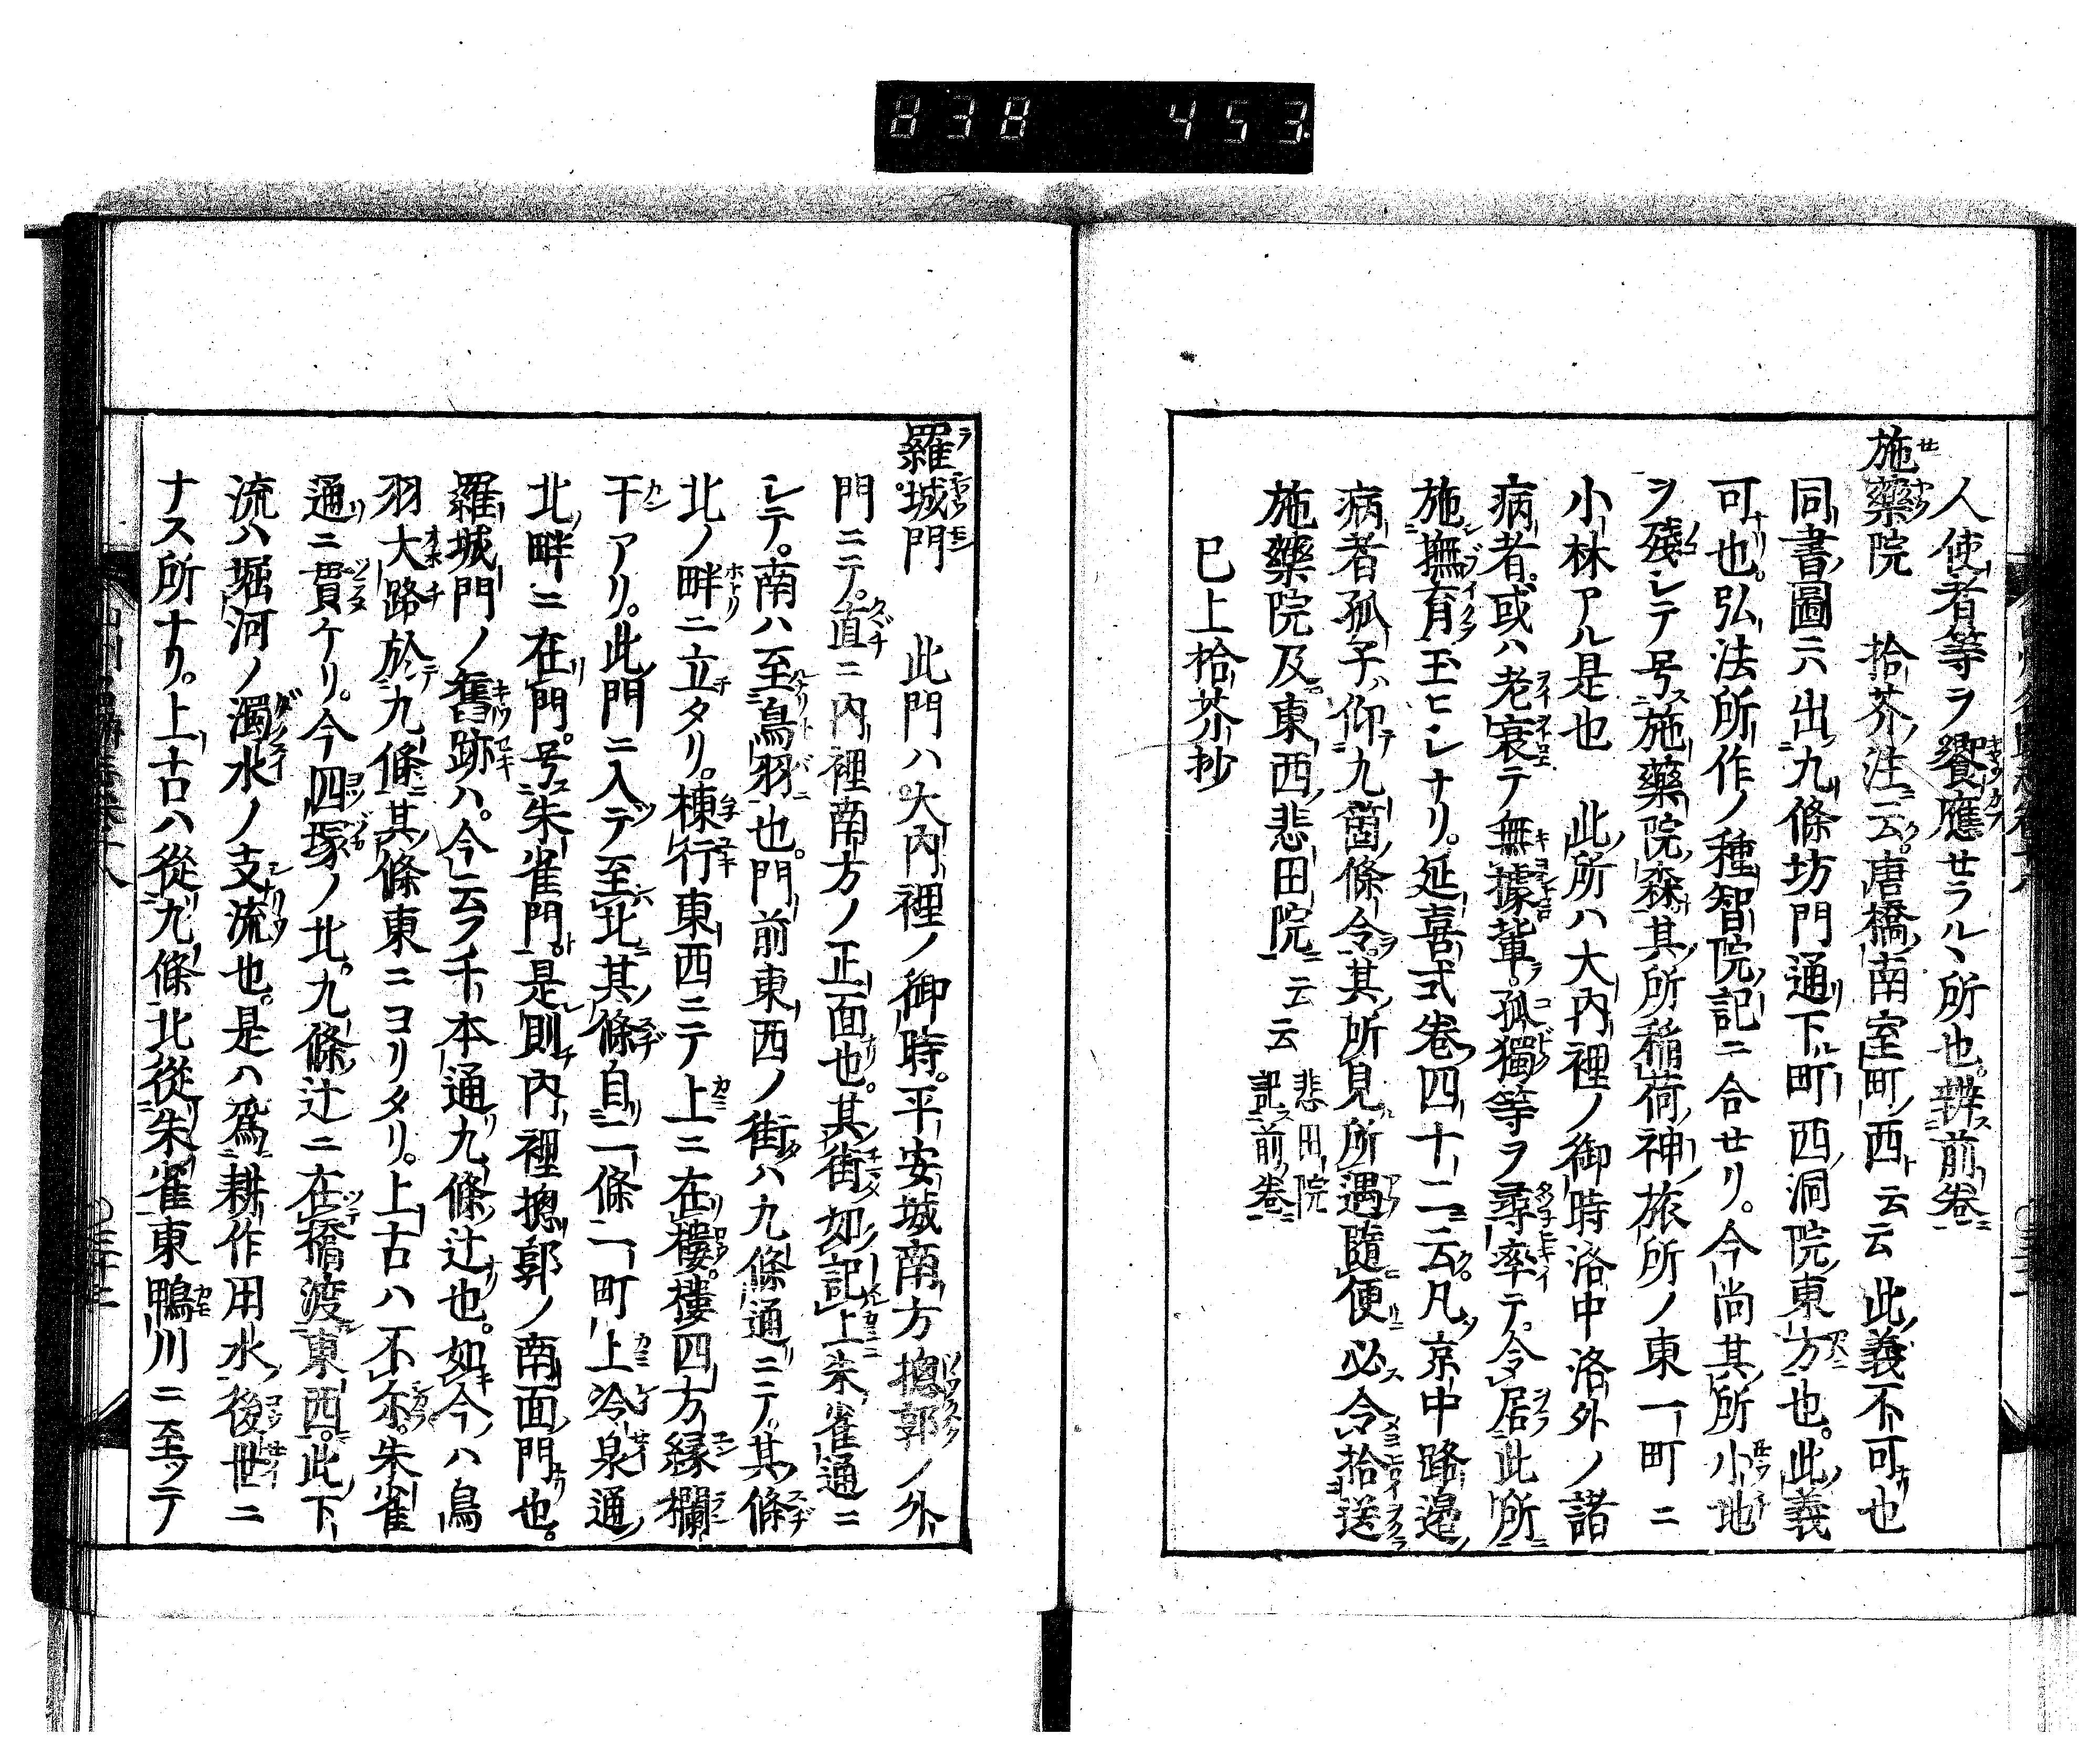 838 453
人使者等ヲ饗應セラルヽ所也。辨前卷
施藥院 拾芥注云。唐橋南室町西云云此義不可也
同書圖ニハ出九條坊門通下町西洞院東方也。此義
可也。弘法所作ノ種智院記ニ合セリ。今尚其所小地
ヲ殘シテ号施藥院森其所稲荷神旅所ノ東一町ニ
小林アル是也 此所ハ大内裡ノ御時洛中洛外ノ諸
病者。或ハ老衰テ無據輩。孤獨等ヲ尋率テ。令居此所
施撫育玉ヒシナリ。延喜式卷四十二云。凡京中路邊
病者孤子ハ仰九箇條令。其所見所遇隨便必令拾送
施藥院及東西悲田院云云 悲田院記前卷
已上拾芥抄
羅城門 此門ハ大内裡ノ御時。平安城南方摠郭ノ外
門ニテ。直ニ内裡南方ノ正面也。其街如記上朱雀通ニ
シテ。南ハ至鳥羽也。門前東西ノ街ハ九條通ニテ。其條
北ノ畔ニ立タリ。棟行東西ニテ上ニ在樓。樓四方縁欄
干アリ。此門ニ入テ至北其條自二條二町上冷泉通
北畔ニ在門。号朱雀門。是則内裡摠郭ノ南面門也。
羅城門ノ舊跡ハ。今云フ千本通九條辻也。如今ハ鳥
羽大路於九條其條東ニヨリタリ。上古ハ不尓。朱雀
通ニ貫ケリ。今四塚ノ北。九條辻ニ在橋渡東西。此下
流ハ堀河ノ濁水ノ支流也。是ハ爲耕作用水後世ニ
ナス所ナリ。上古ハ從九條北從朱雀東鴨川ニ至ッテ